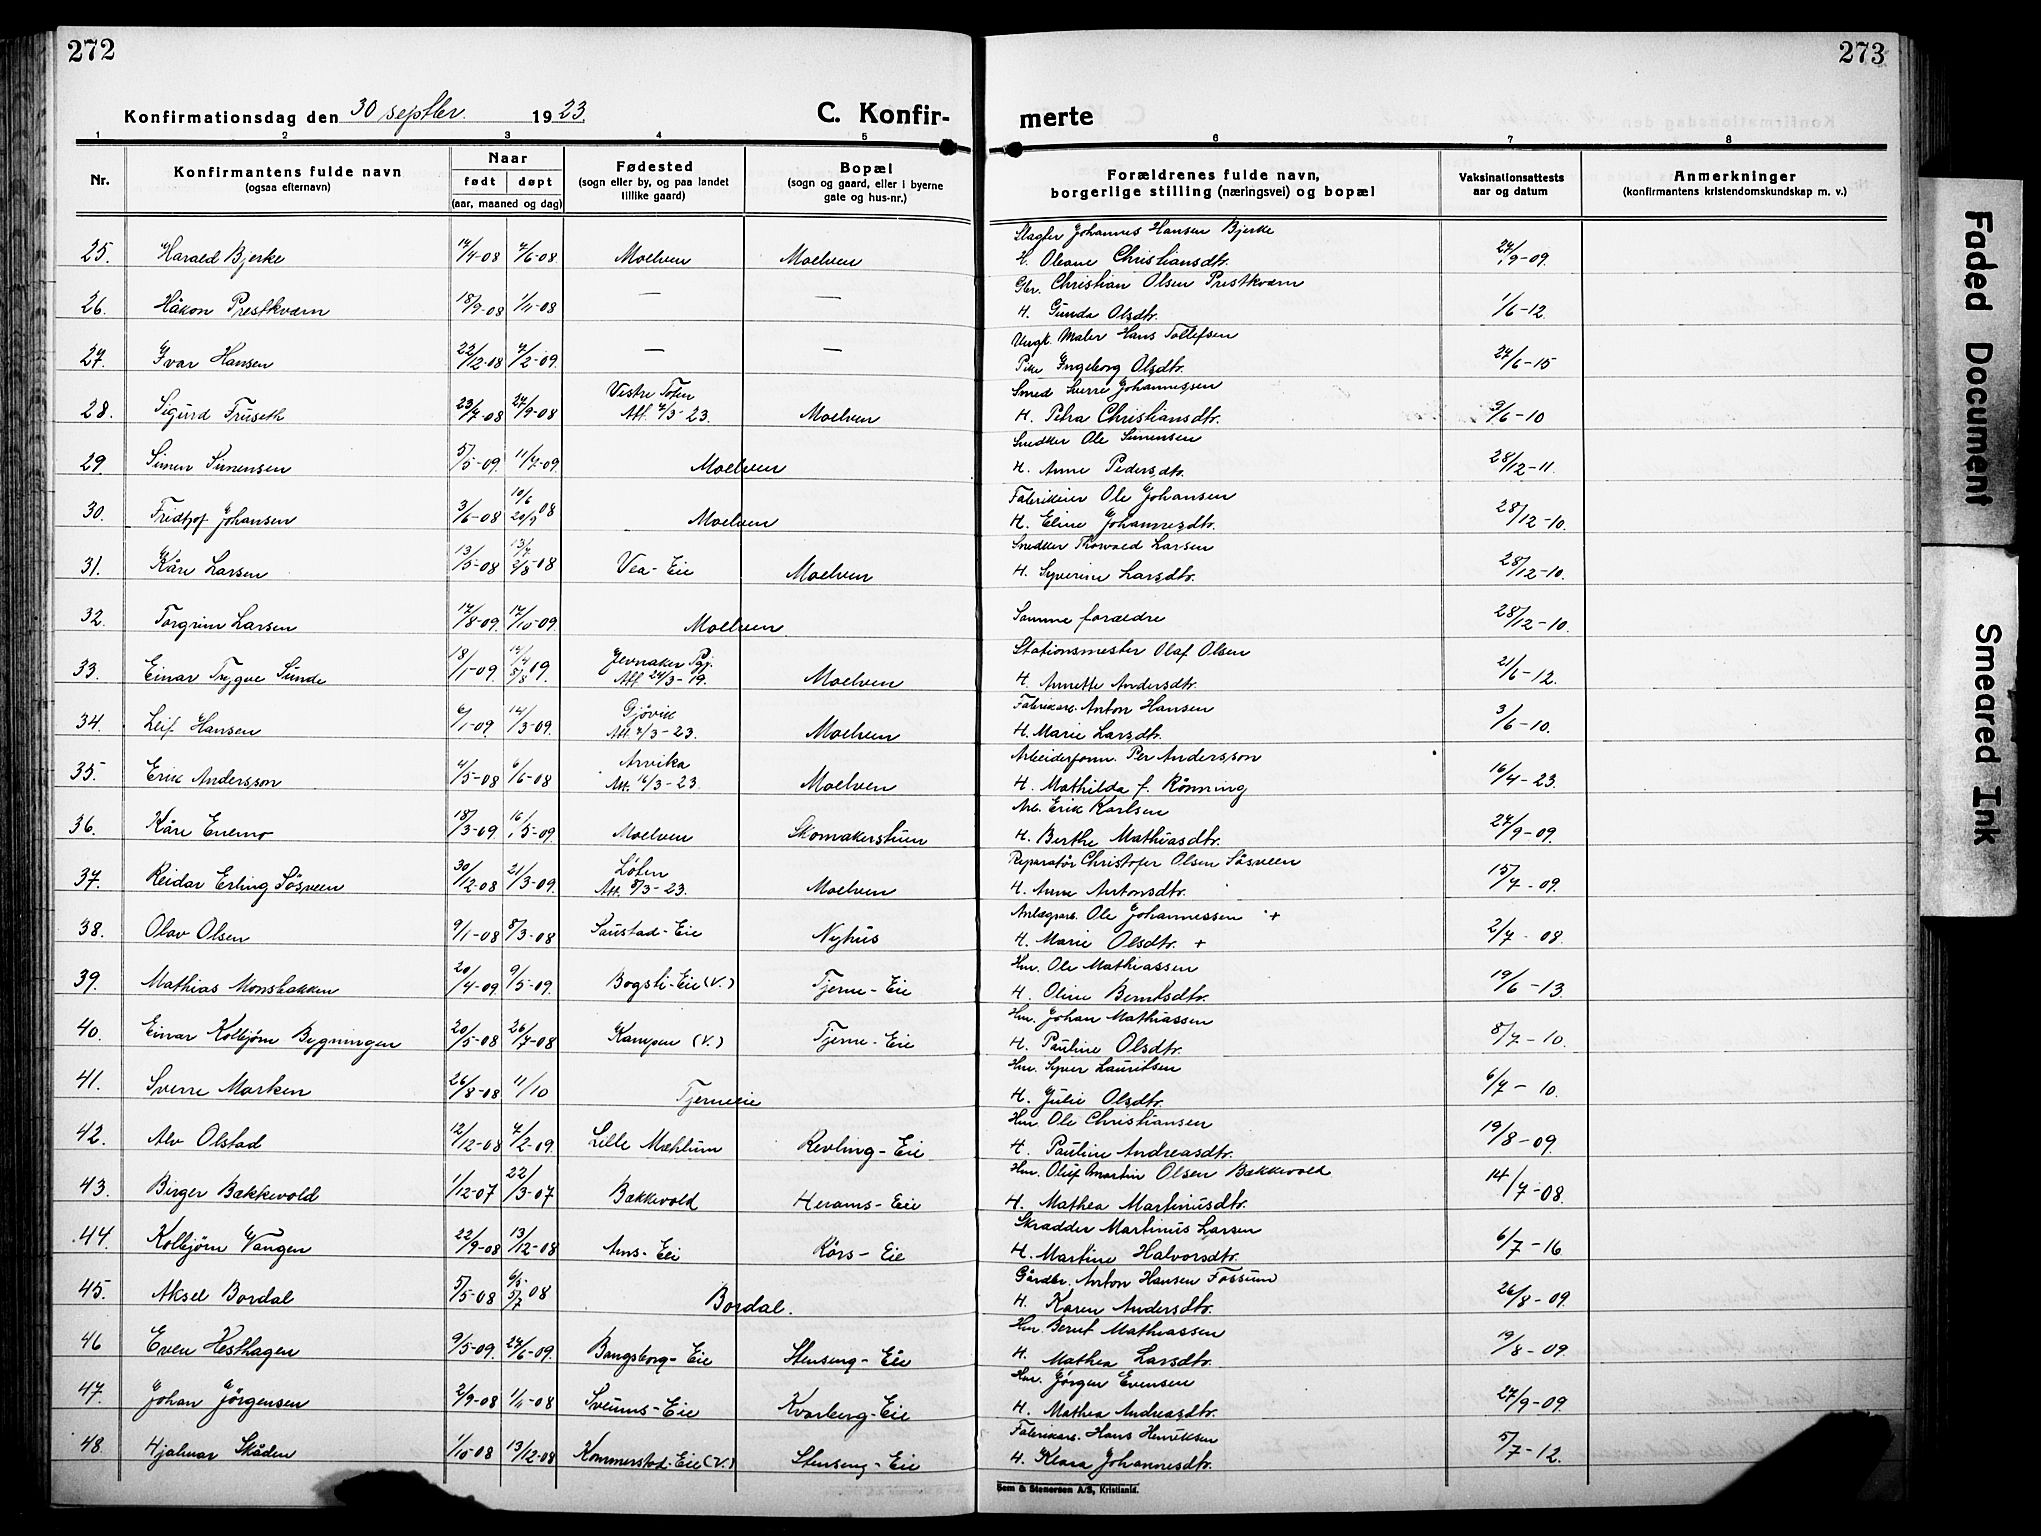 272
273
Konfirmationsdag den 30 septbr. 1923.
C. Konfir-
merte
1 2 3 4 5 6 7 8
Nr.
Konfirmantens fulde navn
(ogsaa efternavn)
Naar
født døpt
(aar, maaned og dag)
Fødested
(sogn eller by, og paa landet
tillike gaard)
Bopæl
(sogn og gaard, eller i byerne
gate og hus-nr.)
Forældrenes fulde navn,
borgerlige stilling (næringsvei) og bopæl
Vaksinationsattests
aar og datum
Anmerkninger
(konfirmantens kristendomskundskap m. v.)
Slagter Johannes Hansen Bjerke
25. Harald Bjerke 17/4-08 7/6-08 Moelven Moelven H. Oleane Christiansdtr. 27/9-09.
Gbr. Christian Olsen Prestkværn
26. Håkon Prestkværn 18/9-08 1/11-08 — — H. Gunda Olsdtr. 1/6-12.
Ungk. Maler Hans Tollefsen
27. Ivar Hansen 22/12-08 7/2-09. — — Pike Ingeborg Olsdtr. 27/6-15
Vestre Toten Smed Sverre Johannessen
28. Sigurd Fruseth 23/7-08 27/9-08 Att. 7/3-23. Moelven H. Petra Christiansdtr. 9/6-10
Snedker Ole Simensen
29. Simen Simensen 5/5-09. 11/7-09. Moelven H. Anne Pedersdtr. 28/12-11.
Fabrikeier Ole Johansen
30. Fridtjof Johansen 3/6-08 10/6 20/9 08 Moelven H. Eline Johannesdtr. 28/12-10.
Snedker Thorvald Larsen
31. Kåre Larsen 13/5-08 13/7 2/8-08 Vea-Eie Moelven H. Syverine Larsdtr. 28/12-10.
32. Torgrim Larsen 17/8-09. 17/10-09. Moelven Samme forældre 28/12-10.
Jevnaker Pgj. Stationsmester Olaf Olsen
33. Einar Trygve Sunde 18/1-09. 12/4 8/8 09. Att. 24/3-19. Moelven H. Annette Andersdtr. 21/6-12.
Gjøvik Fabrikarb. Anton Hansen
34. Leif Hansen 6/1-09 14/3-09. Att. 7/3-23. Moelven H. Marie Larsdtr. 3/6-10.
Arvika Arbeiderform. Per Andersson
35. Erik Andersson 4/5-08 6/6-08 Att. 16/3-23. Moelven H. Mathilda f. Rönning 16/4-23.
Arb. Erik Karlsen
36. Kåre Enemo 18/3-09 16/5-09. Moelven Skomakerstuen H. Berthe Mathiasdtr. 27/9-09.
Løten Reparatør Christofer Olsen Søsveen
37. Reidar Erling Søsveen 30/12-08 21/3-09. Att. 5/3-23. Moelven H. Anne Antonsdtr. 15/7-09.
Anlægsarb. Ole Johannessen +
38. Olav Olsen 9/1-08 8/3-08 Saustad-Eie Nyhus H. Marie Olsdtr. + 2/7-08.
Hm. Ole Mathiassen
39. Mathias Monsbakken 20/4-09 9/5-09. Bogsti-Eie (V.) Tjerne-Eie H. Oline Berntsdtr. 19/6-13.
Hm. Johan Mathiassen
40. Einar Kolbjørn Bygningen 20/5-08 26/7-08 Kampen (V.) Tjerne-Eie H. Pauline Olsdtr. 8/7-10.
Hm. Syver Lauritsen
41. Sverre Marken 26/8-08 11/10 Tjerneeie H. Julie Olsdtr. 6/7-10.
Hm. Ole Christiansen
42. Alv Olstad 12/12-08 7/2-09. Lille Mæhlum Revling-Eie H. Pauline Andreasdtr. 19/8-09.
Hm. Oluf Martin Olsen Bækkevold
43. Birger Bækkevold 1/12-07 22/3-07 Bækkevold Herams-Eie H. Mathea Martinusdtr. 14/7-08.
Skrædder Martinus Larsen
44. Kolbjørn Vangen 22/9-08 13/12-08 Ams-Eie Kørs-Eie H. Martine Halvorsdtr. 6/7-16
Gårdbr. Anton Hansen Fossum
45. Aksel Bordal 5/5-08 6/5 5/7 08 Bordal. H. Karen Andersdtr. 26/8-09.
Hm. Bernt Mathiassen
46 Even Hesthagen 9/5-09. 27/6-09. Bangsberg-Eie Stenseng-Eie H. Mathea Larsdtr. 19/8-09.
Jørgen Evensen
47. Johan Jörgensen 2/9-08 1/11-08 Sveums-Eie Kvarberg-Eie H. Mathea Andreasdtr. 27/9-09.
Fabrikarb. Hans Henriksen
48. Hjalmar Skåden 1/10-08 13/12-08 Kommerstad-Eie (V.) Stenseng-Eie H. Klara Johannesdtr. 5/7-12.
Sem & Stenersen A/S, Kristiania.
Faded Document
Smeared Ink